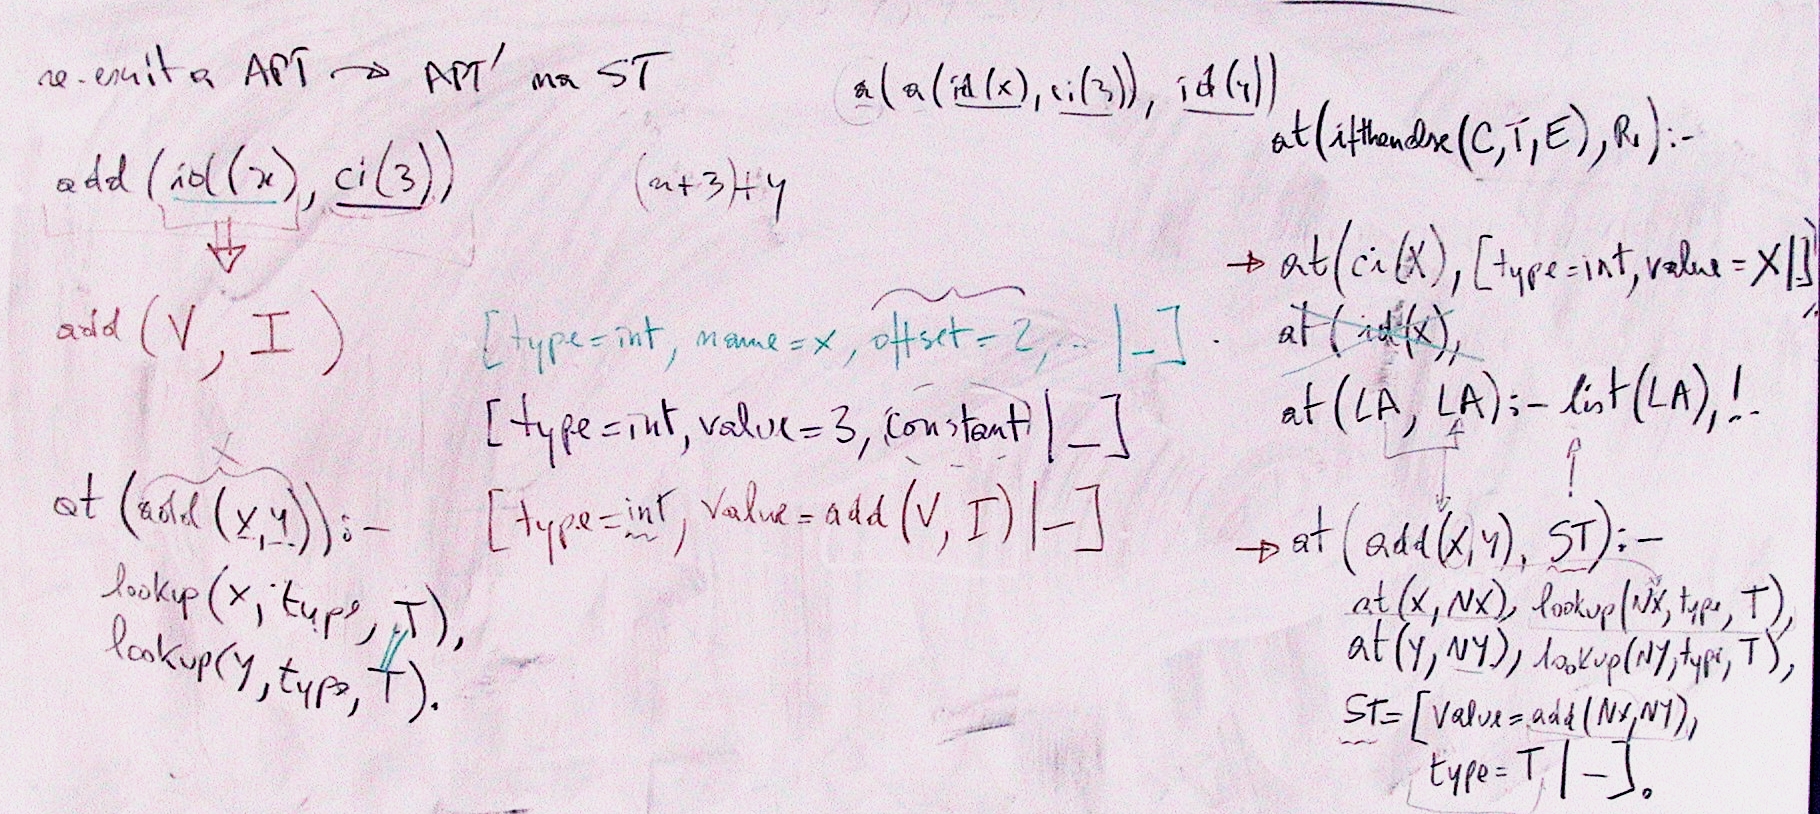 re-escrita APT → APT' na ST
add (id(x), ci(3))
(x+3)+y
a(a(id(x), ci(3)), id(y))
⇓
add (V, I)
[type=int, name=x, offset=2, ... |_].
[type=int, value=3, constant|_]
[type=int, value=add(V, I)|_]
X
at (add(x,y)):-
lookup(x, type, T),
lookup(y, type, T).
at(ifthenelse(C,T,E), R):-
→ at(ci(X), [type=int, value=X|_]).
at(id(x),
at(LA, LA):- list(LA), !.
→ at(add(x,y), ST):-
at(X,NX), lookup(NX,type,T),
at(Y,NY), lookup(NY,type,T),
ST=[value=add(NX,NY),
type=T|_].